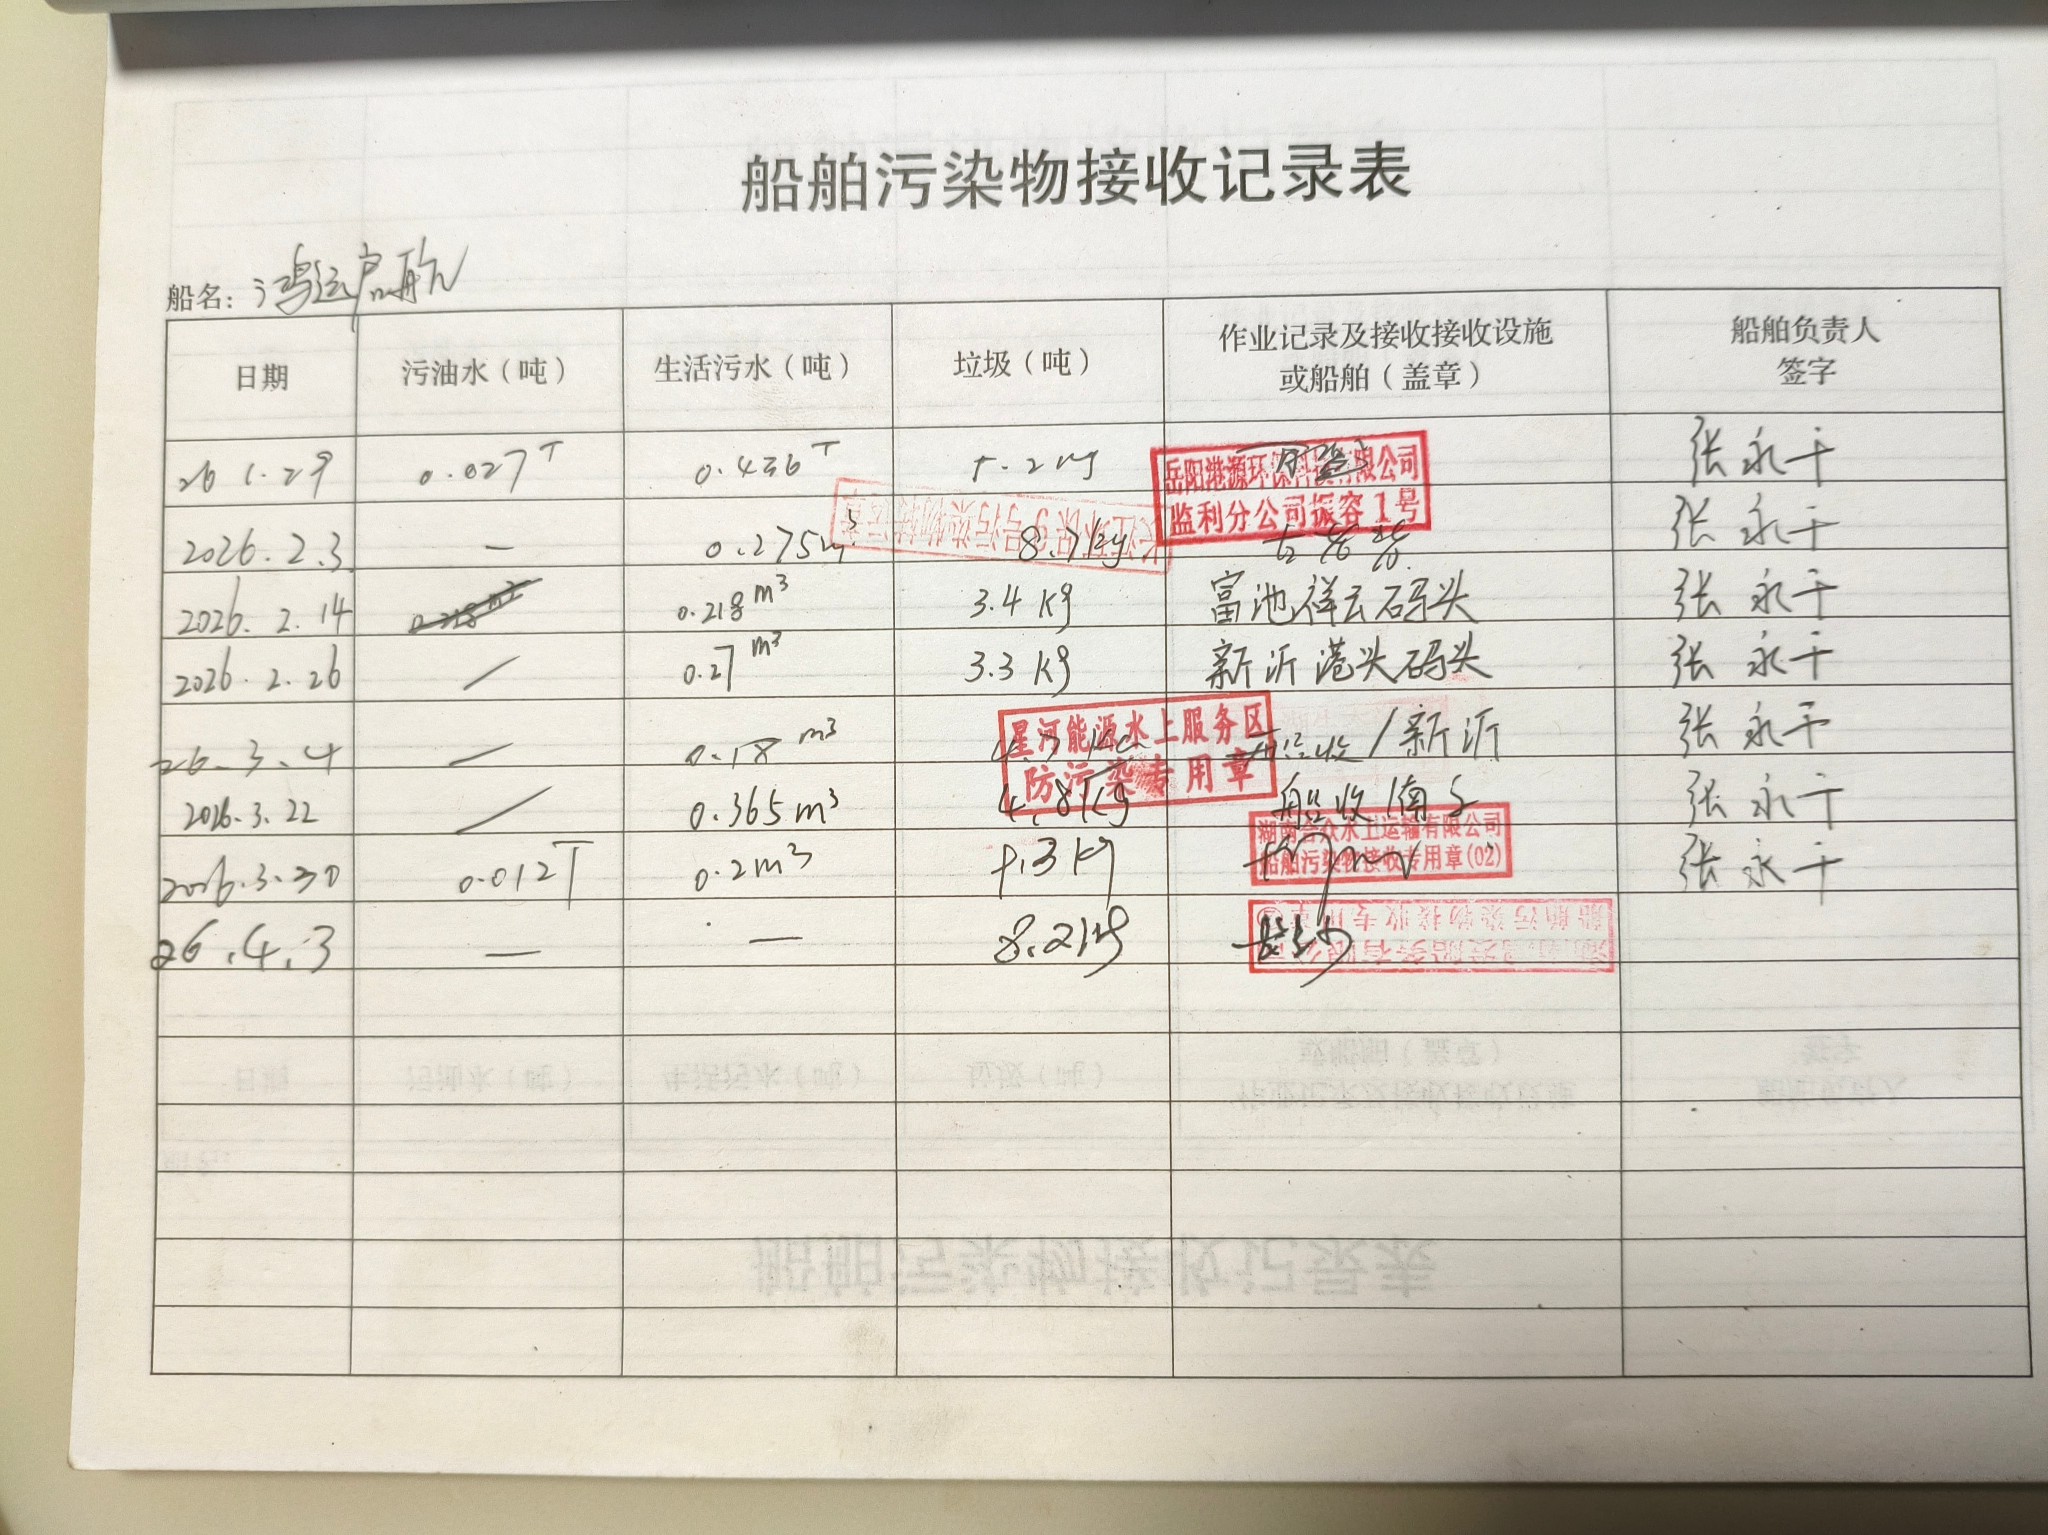 船舶污染物接收记录表
船名：鸿运启航
日期 污油水（吨） 生活污水（吨） 垃圾（吨） 作业记录及接收接收设施 或船舶（盖章） 船舶负责人 签字
26 1.29 0.027T 0.436T 张永干
岳阳港源环保科技有限公司
监利分公司振容1号
2026.2.3 — 0.275m³ 8.7kg 张永干
2026.2.14 0.218m³ 3.4kg 富池祥云码头 张永干
2026.2.26 / 0.27m³ 3.3kg 新沂港头码头 张永干
26.3.4 — 0.18m³ 船收/新沂 张永干
星河能源水上服务区
防污染专用章
2026.3.22 / 0.365m³ 4.8Kg 船收 张永干
湖南合众水上运输有限公司
船舶污染物接收专用章(02)
2026.3.30 0.012T 0.2m³ 张永干
26.4.3 — — 8.2kg
船舶污染物接收专用章